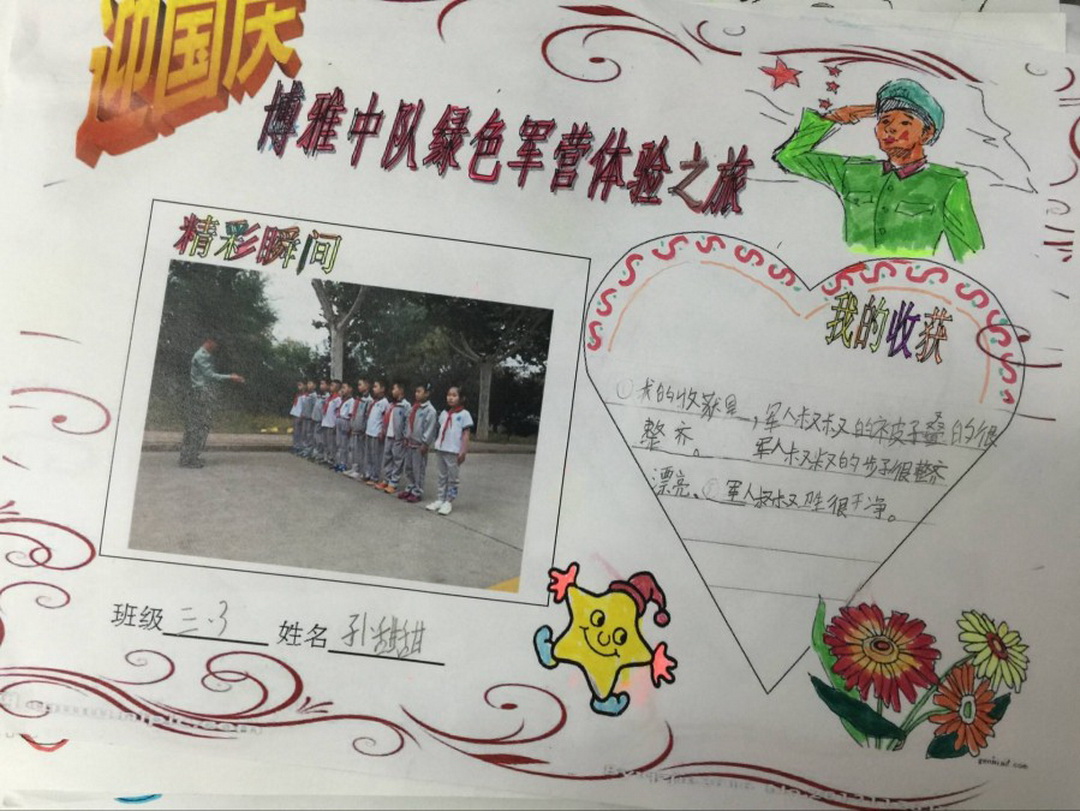 迎国庆
博雅中队绿色军营体验之旅
精彩瞬间
我的收获
①我的收获是,军人叔叔的被皮子叠的很
整齐。 军人叔叔的步子很整齐
漂亮、②军人叔叔卫生很干净。
班级三.3 姓名孔甜甜